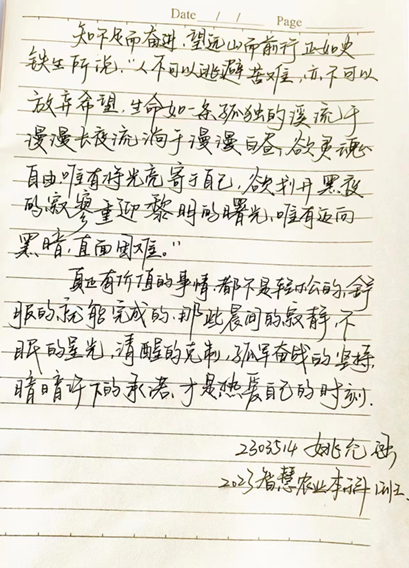 Date / / Page
知不足而奋进,望远山而前行正如史
铁生所说,"人不可以逃避苦难,亦不可以
放弃希望,生命如一条孤独的溪流于
漫漫长夜流淌于漫漫白昼,欲灵魂
自由唯有将光亮寄于自己,欲划开黑夜
的寂寥重迎黎明的曙光,唯有迈向
黑暗,直面困难。"
真正有价值的事情,都不是轻松的,舒
服的就能完成的,那些晨间的寂静,不
眠的星光,清醒的克制,孤军奋战的坚持,
暗暗许下的承诺,才是热爱自己的时刻.
2303514 姚
2023智慧农业本科1班.